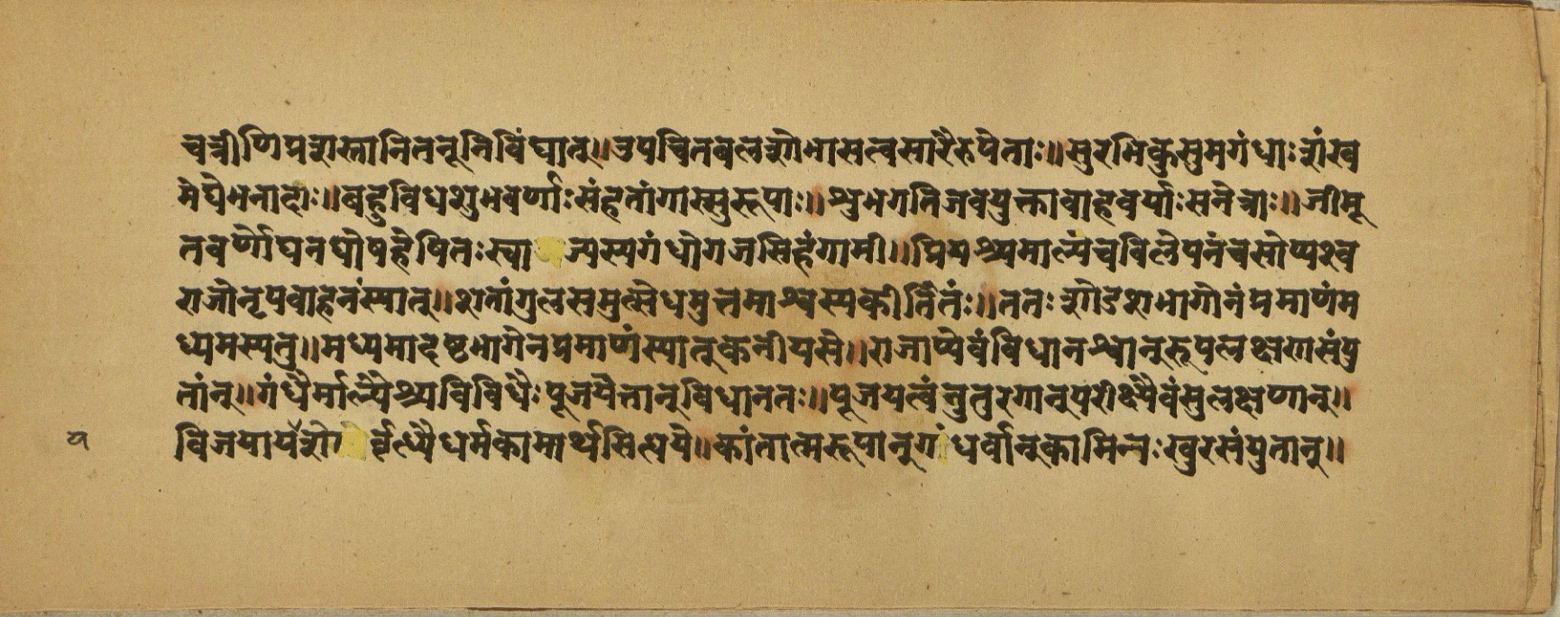 चत्रीणिप्रशस्तानितनूनिविंघात्॥उपचितबलशोभासत्वसारैरुपेताः॥सुरभिकुसुमगंधाःशंख
मेघेभनादाः॥बहुविधशुभवर्णाःसंहतांगास्सुरूपाः॥शुभगतिजवयुक्तावाहवर्याःसनेत्राः॥जीमू
तवर्णोघनघोषह्रेषितःस्वा ज्यस्यगंधोगजसिहंगामी॥प्रियश्च्यमाल्यंचविलेपनंचसोप्यश्व
राजोनृपवाहनंस्यात्॥शतांगुलसमुत्सेधमुत्तमाश्वस्यकीर्तितंः॥ततःशोडशभागोनंप्रमाणंम
ध्यमस्यतु॥मध्यमादष्टभागेनप्रमाणंस्यात्कनीयसे॥राजाप्येवंविधानश्वानुरूपलक्षरासंयु
तांन्॥गंधैर्माल्यैश्च्यविविधैःपूजयेत्तान्विधानतः॥पूजयत्वंनुतुरगान्परीक्ष्यैवंसुलक्षणान्॥
विजयायशो र्वृत्ध्यैधर्मकामार्थसित्धये॥कांतात्मरूपान्गंधर्वान्कामिन्नःखुरसंयुतान्॥
व